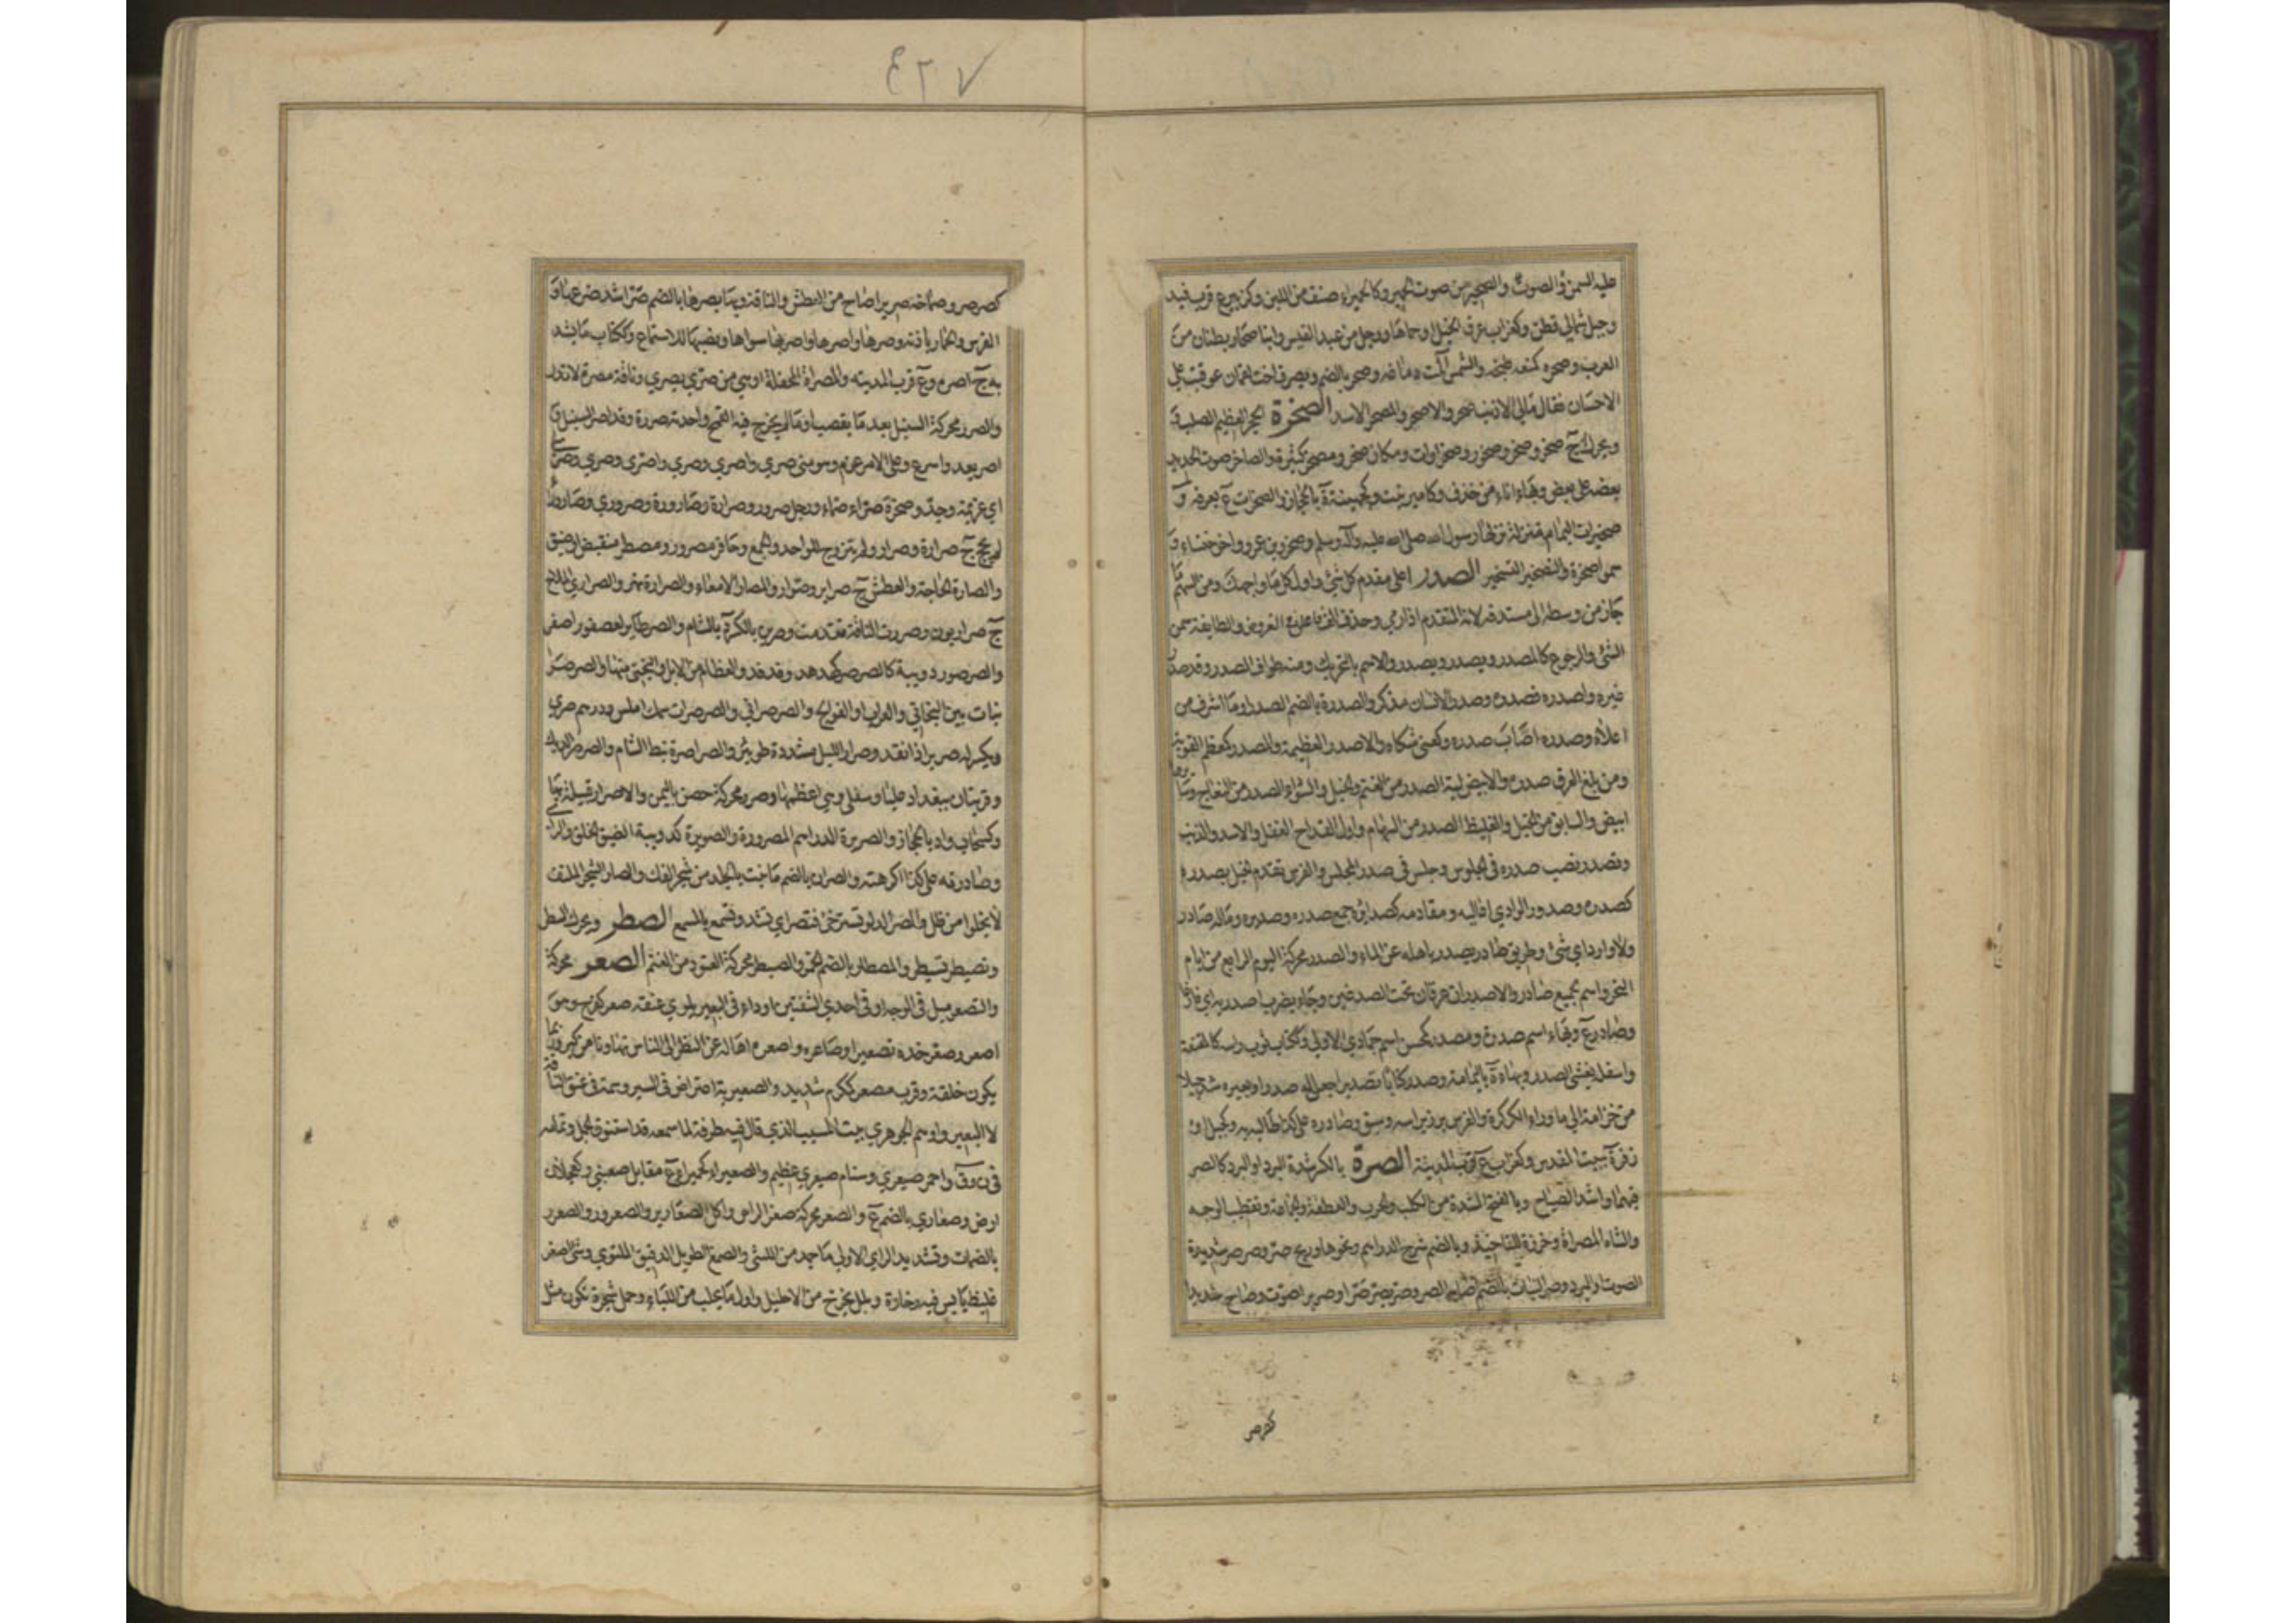 عليه السمن والصوت والصحير من صوت الحمير وكالحميراء صنف من اللبن وكزبير ع قرب فيد
وجبل شمالي قطن وكغراب عرق الخيل او حماها ورجل من عبد القيس وابنا صحار بطنان من
العرب وصحره كمنعه طبخه والشمس آلمت دماغه وصحر بالضم ويصرف اخت لقمان عوقبت على
الاحسان فقال مالي الاذنب صحر والاصحر والمصحر الاسد الصخرة الحجر العظيم الصلب و
ويحرك ج صخر وصخر وصخور وصخرات ومكان صخر ومصخر كثيره والصاخر صوت الحديد
بعضه على بعض وبهاء اناء من خزف وكامير نبت وكجهينة ة بالحجاز والصخرات ع بعرفه و
صخيرات اليمام منزلة نزلها رسول الله صلى الله عليه وآله وسلم وصخر وبن عمرو واخو خنساء و
سموا صخرة والتصخير التسخير الصدر اعلى مقدم كل شئ واول كل ما واجهك ومن السهم ما
جاز من وسطه الى مستدقه لانه المتقدم اذا رمي وحذف الف فاعلن في العروض والطايفة من
الشئ والرجوع كالمصدر ويصدر ويصدر والاسم بالتحريك ومنه طواف الصدر وقد صدر
غيره واصدره فصدره وصدر الانسان مذكر والصدرة بالضم الصدر او ما اشرف من
اعلاه وصدره اصاب صدره وكعني شكاه والاصدر العظيمه والمصدر كمعظم القويه
ومن بلغ العرق صدره والابيض لبة الصدر من الغنم والخيل والسوداء الصدر من النعاج وسائرها
ابيض والسابق من الخيل والغليظ الصدر من السهام واول القداح الغفل والاسد والذئب
وتصدر نصب صدره في الجلوس وجلس في صدر المجلس والفرس تقدم الخيل بصدره
كصدر وصدور الوادي اعاليه ومقادمه كصدايره جمع صدره وصديره وماله صادر
ولا وارد اي شئ وطريق صادر يصدر باهله عن الماء والصدر محركة اليوم الرابع من ايام
النحر واسم لجميع صادر والاصدران عرقان تحت الصدغين وجاء يضرب اصدريه اي فارغا
وصادر ع وبهاء اسم صدرة ومصدر كمحسن اسم جمادى الاولى وككتاب ثوب راسه كالمقنعة
واسفله يغشى الصدر وبهاء ة باليمامة وصدر كتابا تصديرا جعل له صدرا وبعيره شد حبلا
من حزامه الى ما وراء الكركرة والفرس برز براسه وسبق وصادره على كذا طالبه به وكجبل او
زفر ة ببيت المقدس وكغراب ع قرب المدينة الصرة بالكسر شدة البرد او البرد كالصر
فيهما واشد الصياح وبالفتح الشدة من الكلب والحرب والعطفة والجماعة وتقطب الوجه
والشاة المصراة وخرزة للتاخيذ وبالضم شرج الدراهم ونحوها وريح صر وصرصر شديدة
الصوت والبرد وصر النبات بالضم اصابه الصر وصر يصر صرا وصريرا صوت وصاح شديدا
كصرصر
٤٢٧
كصرصر وصماخه صريرا صاح من العطش والناقة وبها يصرها بالضم صرا شد ضرعها و
الفرس والحمار باذنه وصرها واصرها واصر بها سواها ونصبها للاستماع وككتاب ما يشد
به ج اصرة وع قرب المدينه والمصراة المحفلة او هي من صرى يصري وناقة مصرة لا تدر
والصرر محركة السنبل بعد ما يقصب او ما لم يخرج فيه القمح واحدته صررة وقد اصر السنبل و
اصر يعدو اسرع وعلى الامر عزم وهو مني صري واصري وصري واصري وصري وصرى
اي عزيمة وجد وصخرة صراء صماء ورجل صرور وصرارة وصارورة وصروري وصارورا
لم يحج ج صرارة وصرار ولم يتزوج للواحد والجمع وحافر مصرور ومصطر منقبض او ضيق
والصارة الحاجة والعطش ج صراير وصوار والمصار الامعاء والصرارة نهر والصراري الملاح
ج صراريون وصررت الناقة تقدمت وصرين بالكسر ة بالشام والصر طاير لعصفور اصفر
والصرصور دويبة كالصرصر كهدهد وفدفد والعظام من الابل والبختي منها والصرصر
نبات بين البخاتي والعراب او الفوالج والصرصراني والصرصران سمك املس ودرهم صري
ويكسر له صرير اذا نقد وصرار الليل مشددة طويئر والصراصرة نبط الشام والصرصر الديك
وقريتان ببغداد عليا وسفلى وهي اعظمها وصرر محركة حصن باليمن والاصرار قبيلة بها
وكسحاب واد بالحجاز والصريرة الدراهم المصرورة والصويرة كدويبة الضيق الخلق والراي
وصاررته على كذا اكرهته والصران بالضم ما نبت بالجلد من شجر العلك والصار الشجر الملتف
لا يخلو من ظل والصر الدلو تسترخي فتصر اي تشد وتسمع بالمسمع الصطر ويحرك السطر
وتصيطر تسيطر والمصطار بالضم الخمر والصبطر محركة العتود من الغنم الصعر محركة
والتصعر ميل في الوجه او في احدى الشقتين او داء في البعير يلوي عنقه صعر كفرح وهو
اصعر وصعر خده تصعيرا وصاعره واصعره اماله عن النظر الى الناس تهاونا من كبر وربما
يكون خلقة وقرب مصعر كمكرم شديد والصعيرية اعتراض في السير وسمة في عنق الناقة
لا البعير واوهم الجوهري بيت المسيب الذي قال فيه طرفة لما سمعه قد استنوق الجمل وتمامه
في ن وق واحمر صيعري وسنام صيعري عظيم والصعيراء كحميراء ع مقابل صعنبى وكعجلان
ارض وصعاري بالضم ع والصعر محركة صغر الراس واكل الصعارير والصعرور والصعرر
بالضمات وتشديد الراي الاولى ما جمد من اللثى والصمغ الطويل الدقيق الملتوي وشئ اصفر
غليظ يابس فيه رخاوة وبلل يخرج من الاحليل واول ما يحلب من اللباء وحمل شجرة تكون مثل